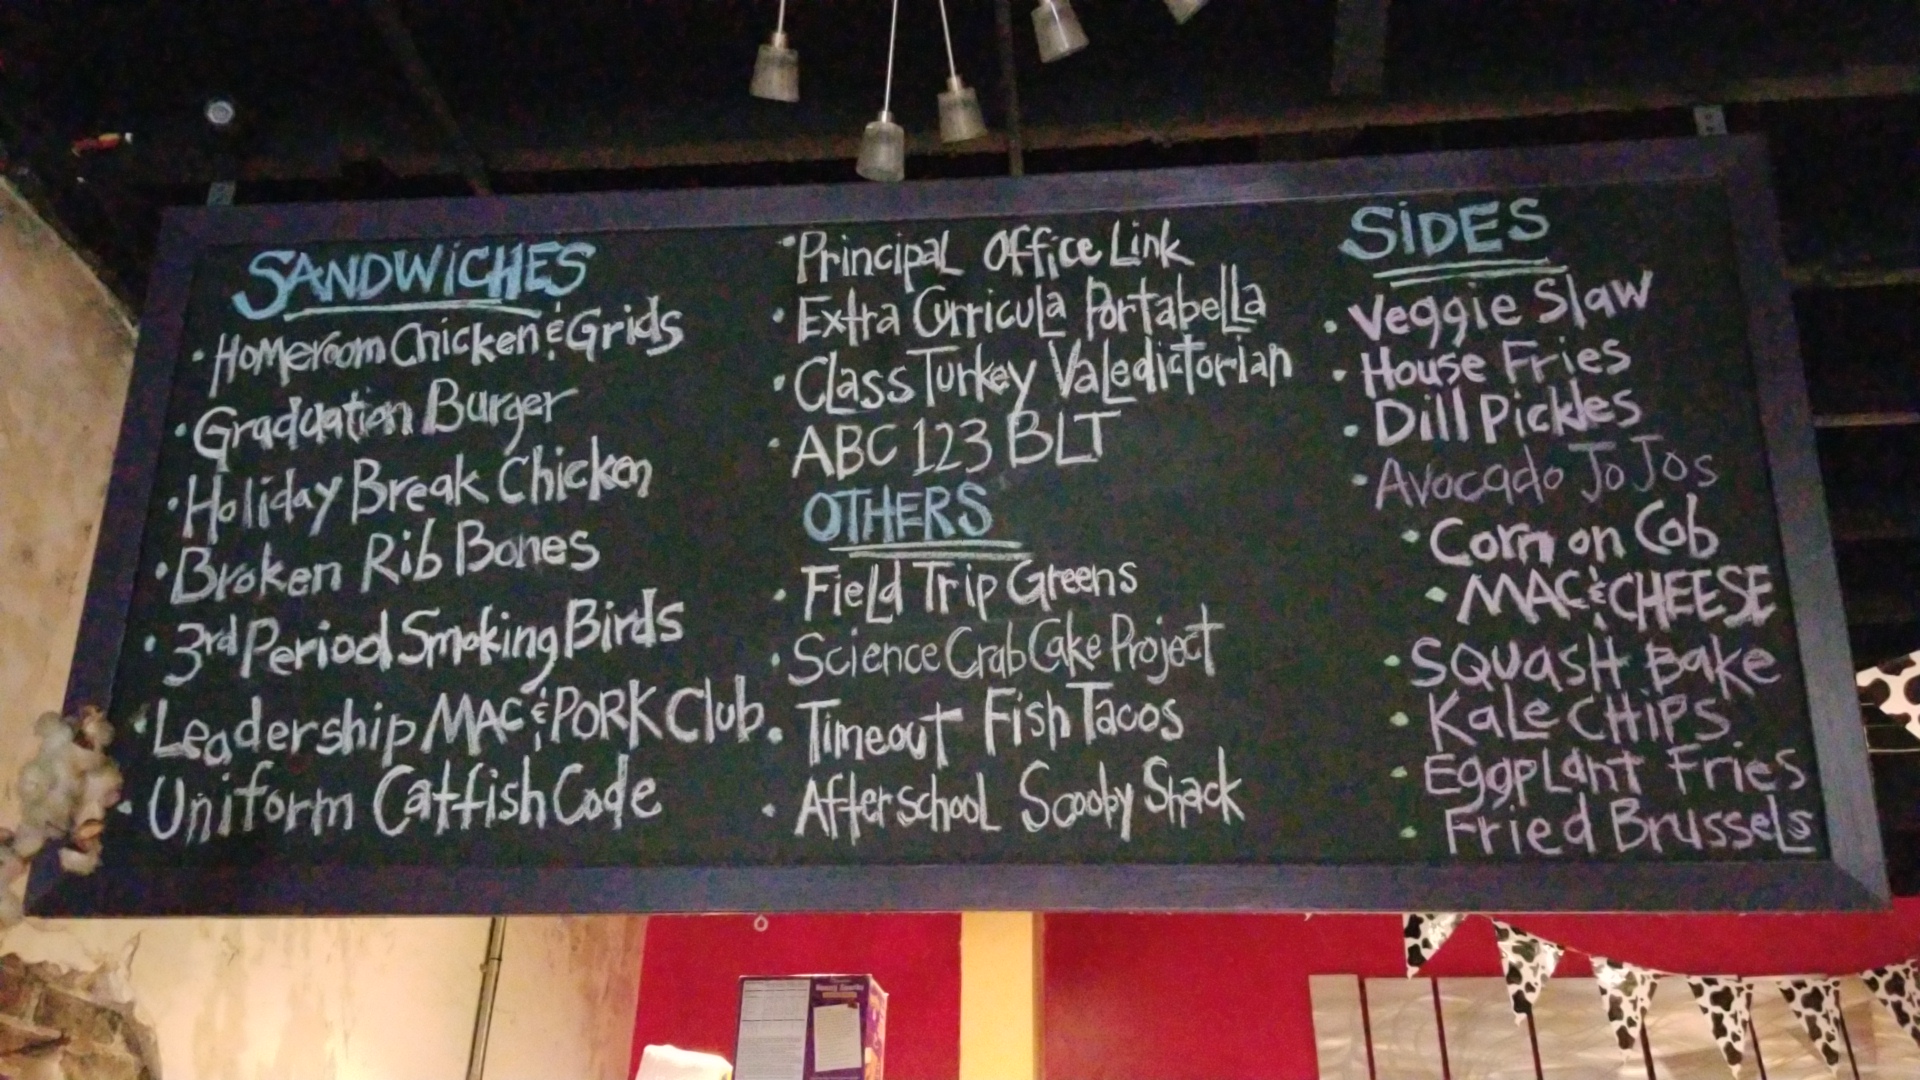 SANDWICHES
• Homeroom Chicken & Grids
• Graduation Burger
• Holiday Break Chicken
• Broken Rib Bones
• 3rd Period Smoking Birds
• Leadership MAC & PORK Club
• Uniform Catfish Code
• Principal Office Link
• Extra Curricula Portabella
• Class Turkey Valedictorian
• ABC 123 BLT
OTHERS
• Field Trip Greens
• Science Crab Cake Project
• Timeout Fish Tacos
• After school Scooby Snack
SIDES
• Veggie Slaw
• House Fries
• Dill Pickles
• Avocado JoJos
• Corn on Cob
• MAC & CHEESE
• SQUASH Bake
• Kale CHIPS
• Eggplant Fries
• Fried Brussels